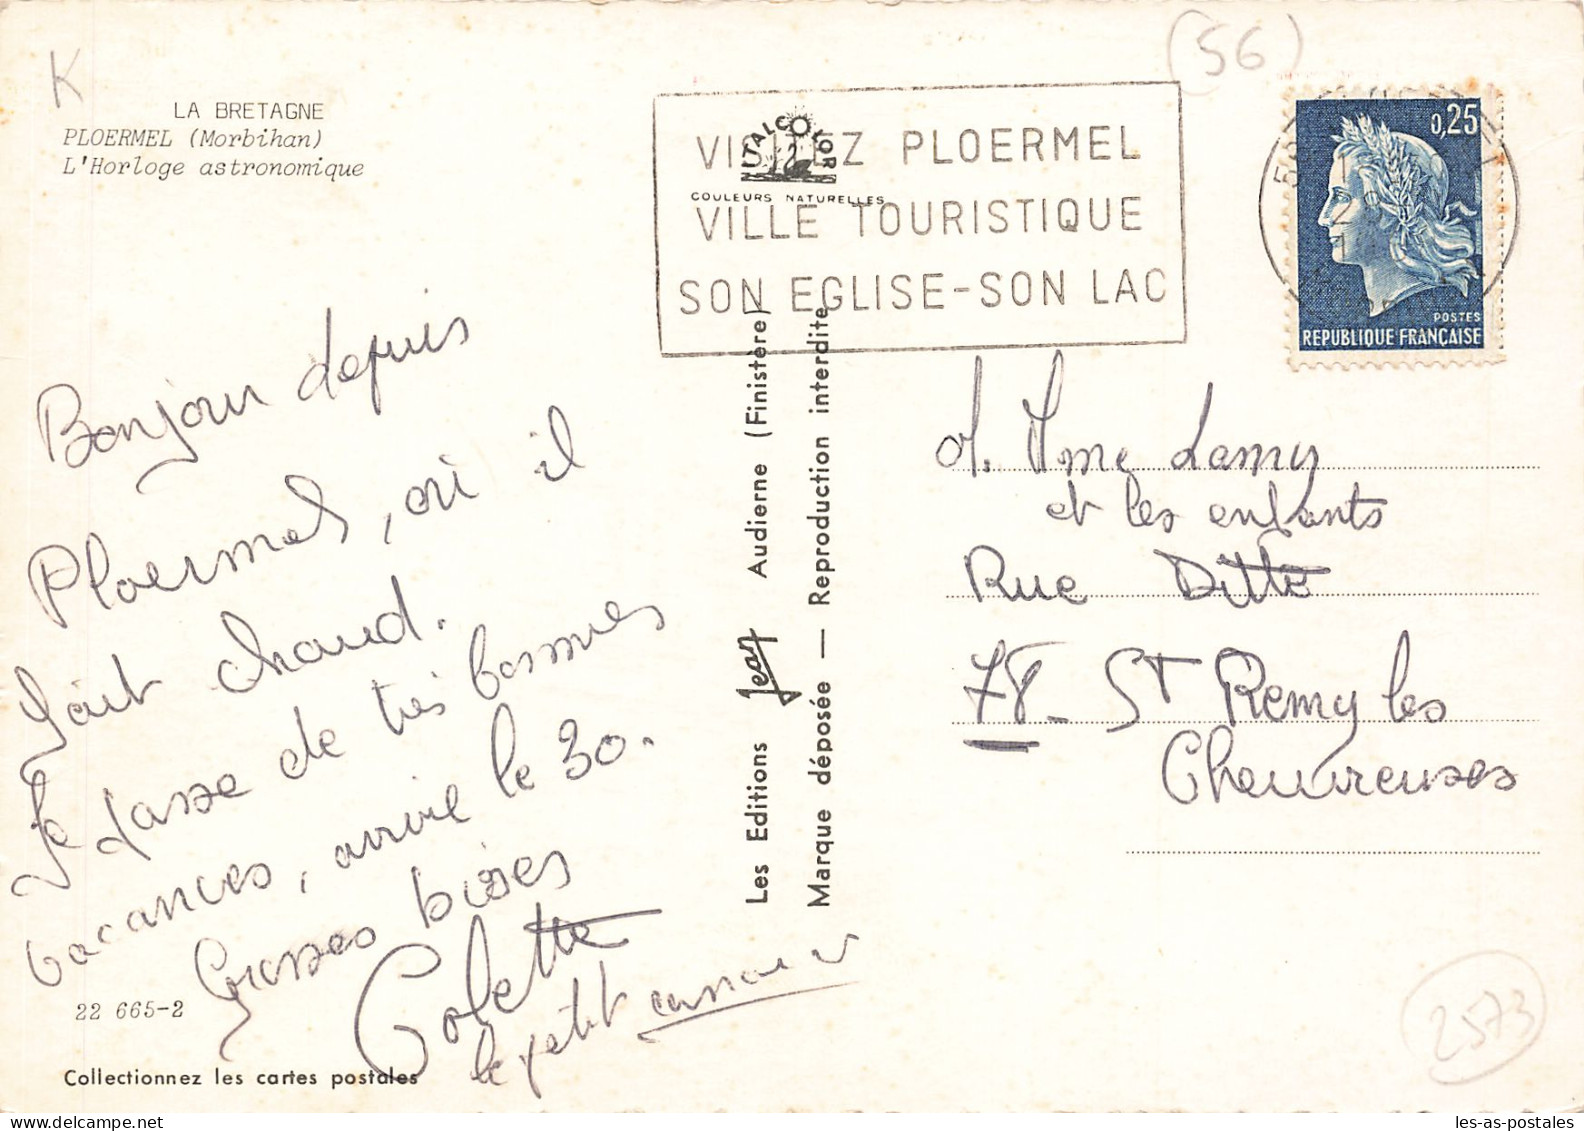 K
(56)
LA BRETAGNE
PLOERMEL (Morbihan)
L'Horloge astronomique
ITALCOLOR
COULEURS NATURELLES
VISITEZ PLOERMEL
VILLE TOURISTIQUE
SON EGLISE-SON LAC
0,25
POSTES
REPUBLIQUE FRANÇAISE
Bonjour depuis
Ploermel, où il
fait chaud.
Je passe de très bonnes
vacances, arrivée le 30.
Grosses bises
Colette
le petit
22 665-2
Collectionnez les cartes postales
Les Editions Jean Audierne (Finistère)
Marque déposée — Reproduction interdite
M. Mme Lamy
et les enfants
Rue Ditte
78 - St Remy les
Chevreuses
2573
les-as-postales